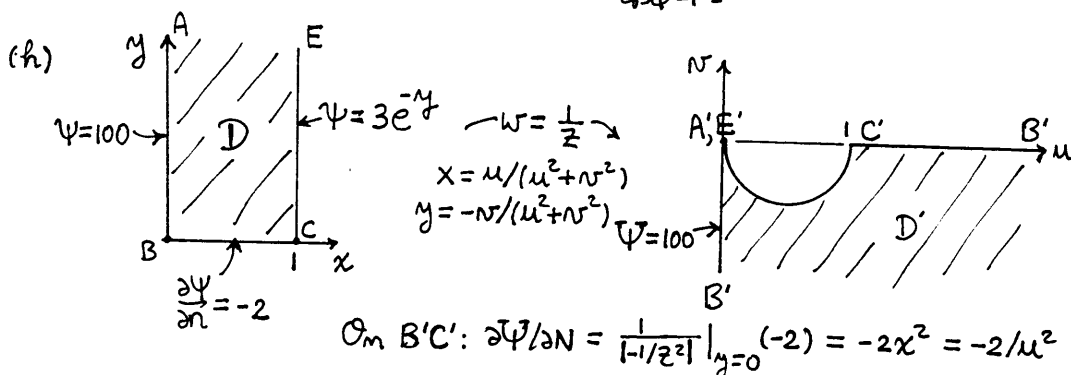 (h)
y
A
E
Ψ=100
D
Ψ=3e^{-y}
B
C
1
x
∂Ψ/∂n = -2
w = 1/z
x = u/(u²+v²)
y = -v/(u²+v²)
v
A',E'
1 C'
B'
u
Ψ=100
D'
B'
On B'C': ∂Ψ/∂N = 1/|-1/z²| |_{y=0} (-2) = -2x² = -2/u²